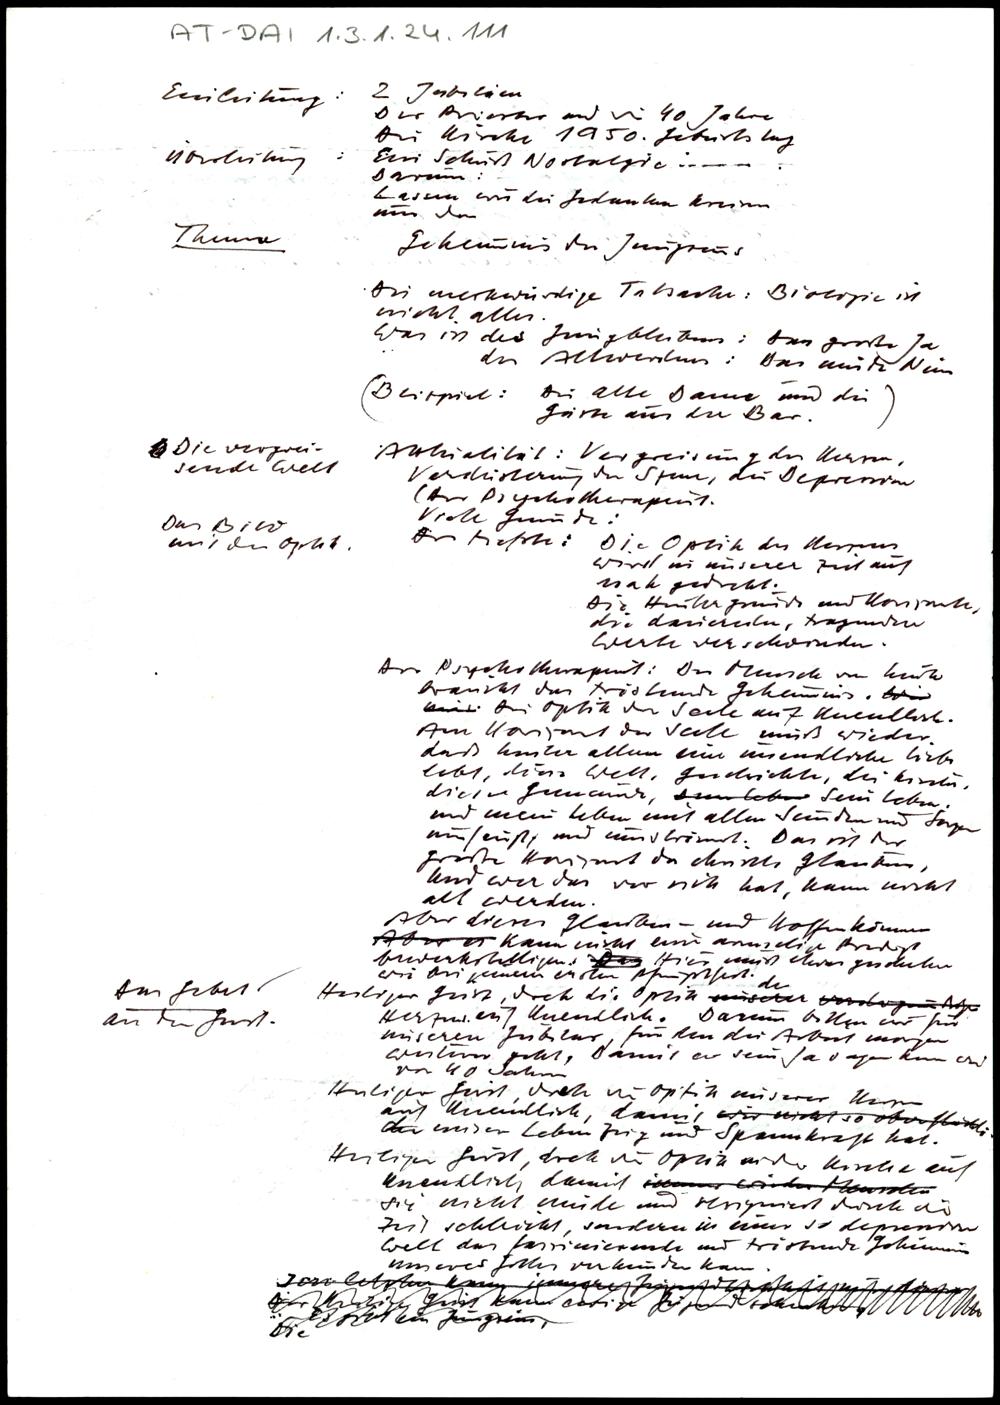 AT-DAI 1.3.1.24.111
Einleitung: 2 Jubiläen
Der Priester und die 40 Jahre
Die Kirche 1950. Geburtstag
Überleitung: Ein Schuß Nostalgie
Darum:
Lassen wir die Gedanken kreisen
um das
Thema Geheimnis des Jungseins
Die merkwürdige Tatsache: Biologie ist
nicht alles.
Was ist des Jungbleibens: Das große Ja
des Altwerdens: Das müde Nein
(Beispiel: Die alte Dame und die
Gäste aus der Bar.)
Die vergrei-
sende Welt
Aktualität: Vergreisung der Herzen,
Verdüsterung der Sinne, die Depression
(Der Psychotherapeut.
Viele Gründe:
Das Bild
mit der Optik.
Der tiefste: Die Optik des Herzens
wird in unserer Zeit auf
nah gedreht.
Die Hintergründe und Horizonte,
die dauernden, tragenden
Werte verschwinden.
Der Psychotherapeut: Der Mensch von heute
braucht das tröstende Geheimnis.
Die Optik der Seele auf Unendlich.
Am Horizont der Seele muß wieder
daß hinter allem eine unendliche Liebe
lebt, diese Welt, Geschichte, die Kirche,
diese Gemeinde, sein Leben,
und mein Leben mit allen Sünden und Sorgen
umfaßt und umströmt. Das ist der
große Horizont des christl. Glaubens,
und wer das vor sich hat, kann nicht
alt werden.
Aber dieses Glauben- und Hoffenkönnen
Aber es kann nicht eine armselige Predigt
bewerkstelligen. Das Hier muß etwas geschehen
wie bei jenem ersten Pfingstfest.
Das Gebet
an den Geist.
Heiliger Geist, dreh die Optik unserer
Herzen auf Unendlich. Darum bitten wir für
unseren Jubilar, für den die Arbeit morgen
weiter geht, Damit er sein Ja sagen kann wie
vor 40 Jahren
Heiliger Geist, dreh die Optik unserer Herzen
auf Unendlich, damit wir nicht so oberflächli-
unser Leben und Spannkraft hat.
Heiliger Geist, dreh die Optik in der Kirche auf
Unendlich, damit
sie nicht müde und resigniert durch die
Zeit schleicht, sondern in einer so depressiven
Welt das faszinierende und tröstende Geheimnis
unseres Gottes verkünden kann.
Die